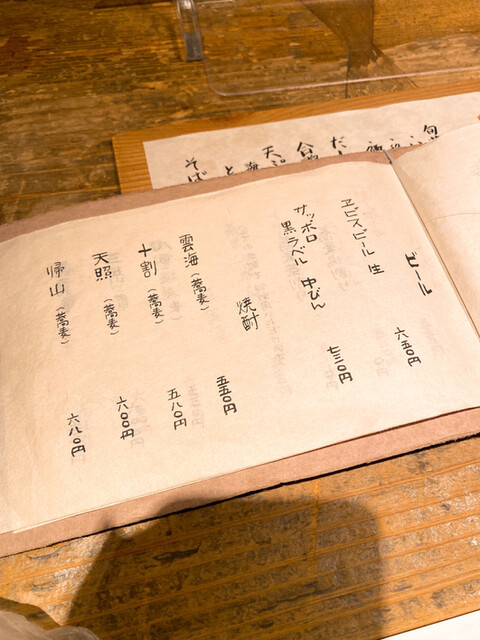 ビール
ヱビスビール 生 六五〇円
サッポロ
黒ラベル 中びん 七三〇円
焼酎
雲海（蕎麦） 五五〇円
十割（蕎麦） 五八〇円
天照（蕎麦） 六〇〇円
帰山（蕎麦） 六八〇円
そば